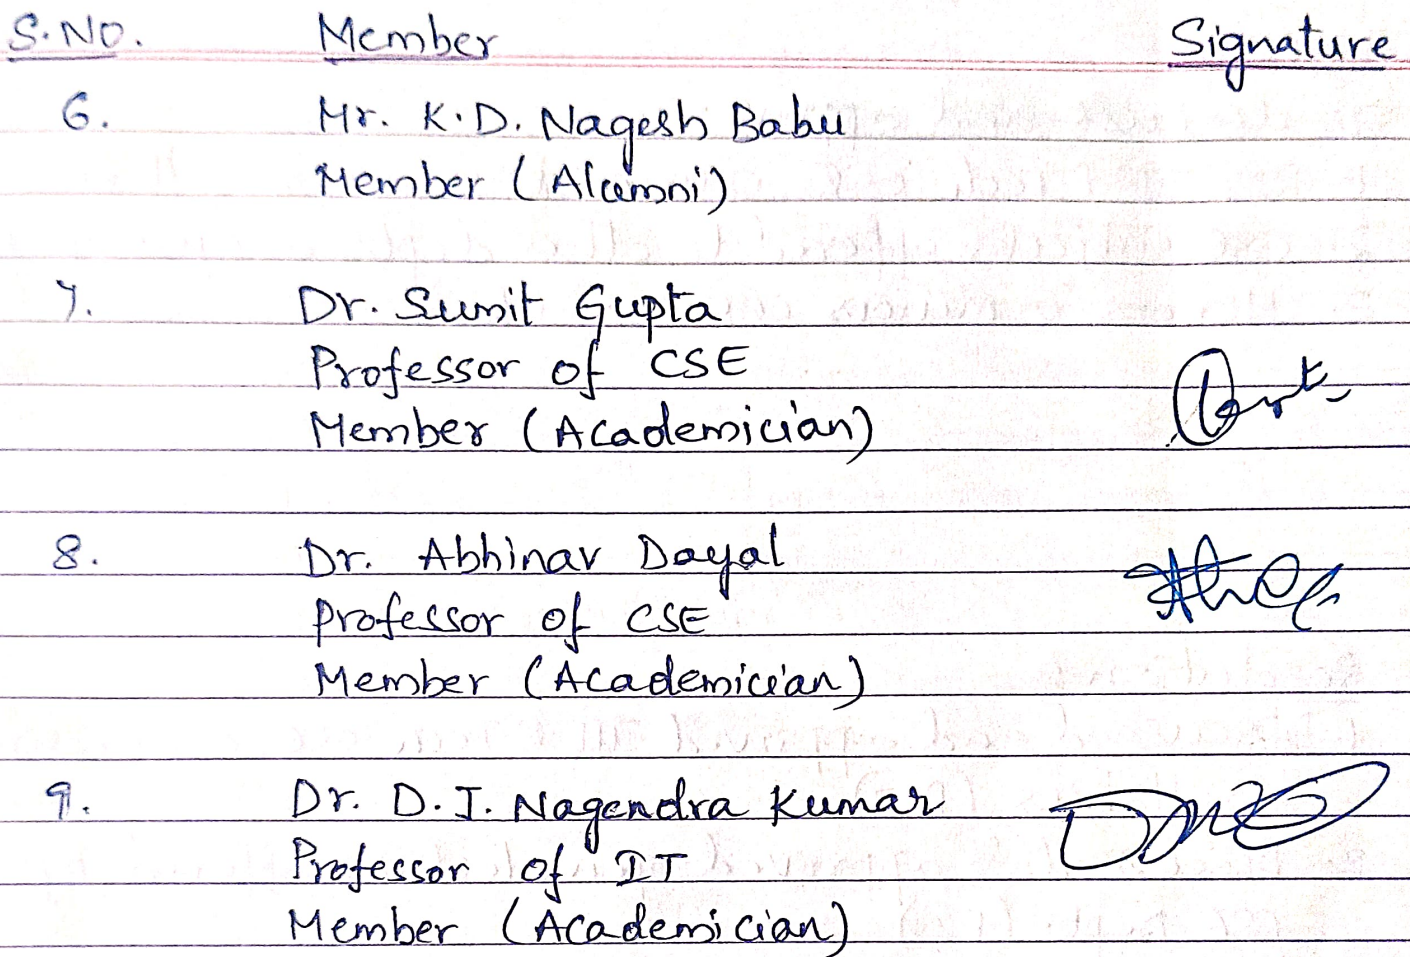 S.NO. Member Signature
6. Mr. K.D. Nagesh Babu
Member (Alumni)
7. Dr. Sumit Gupta
Professor of CSE
Member (Academician)
8. Dr. Abhinav Dayal
Professor of CSE
Member (Academician)
9. Dr. D.J. Nagendra Kumar
Professor of IT
Member (Academician)